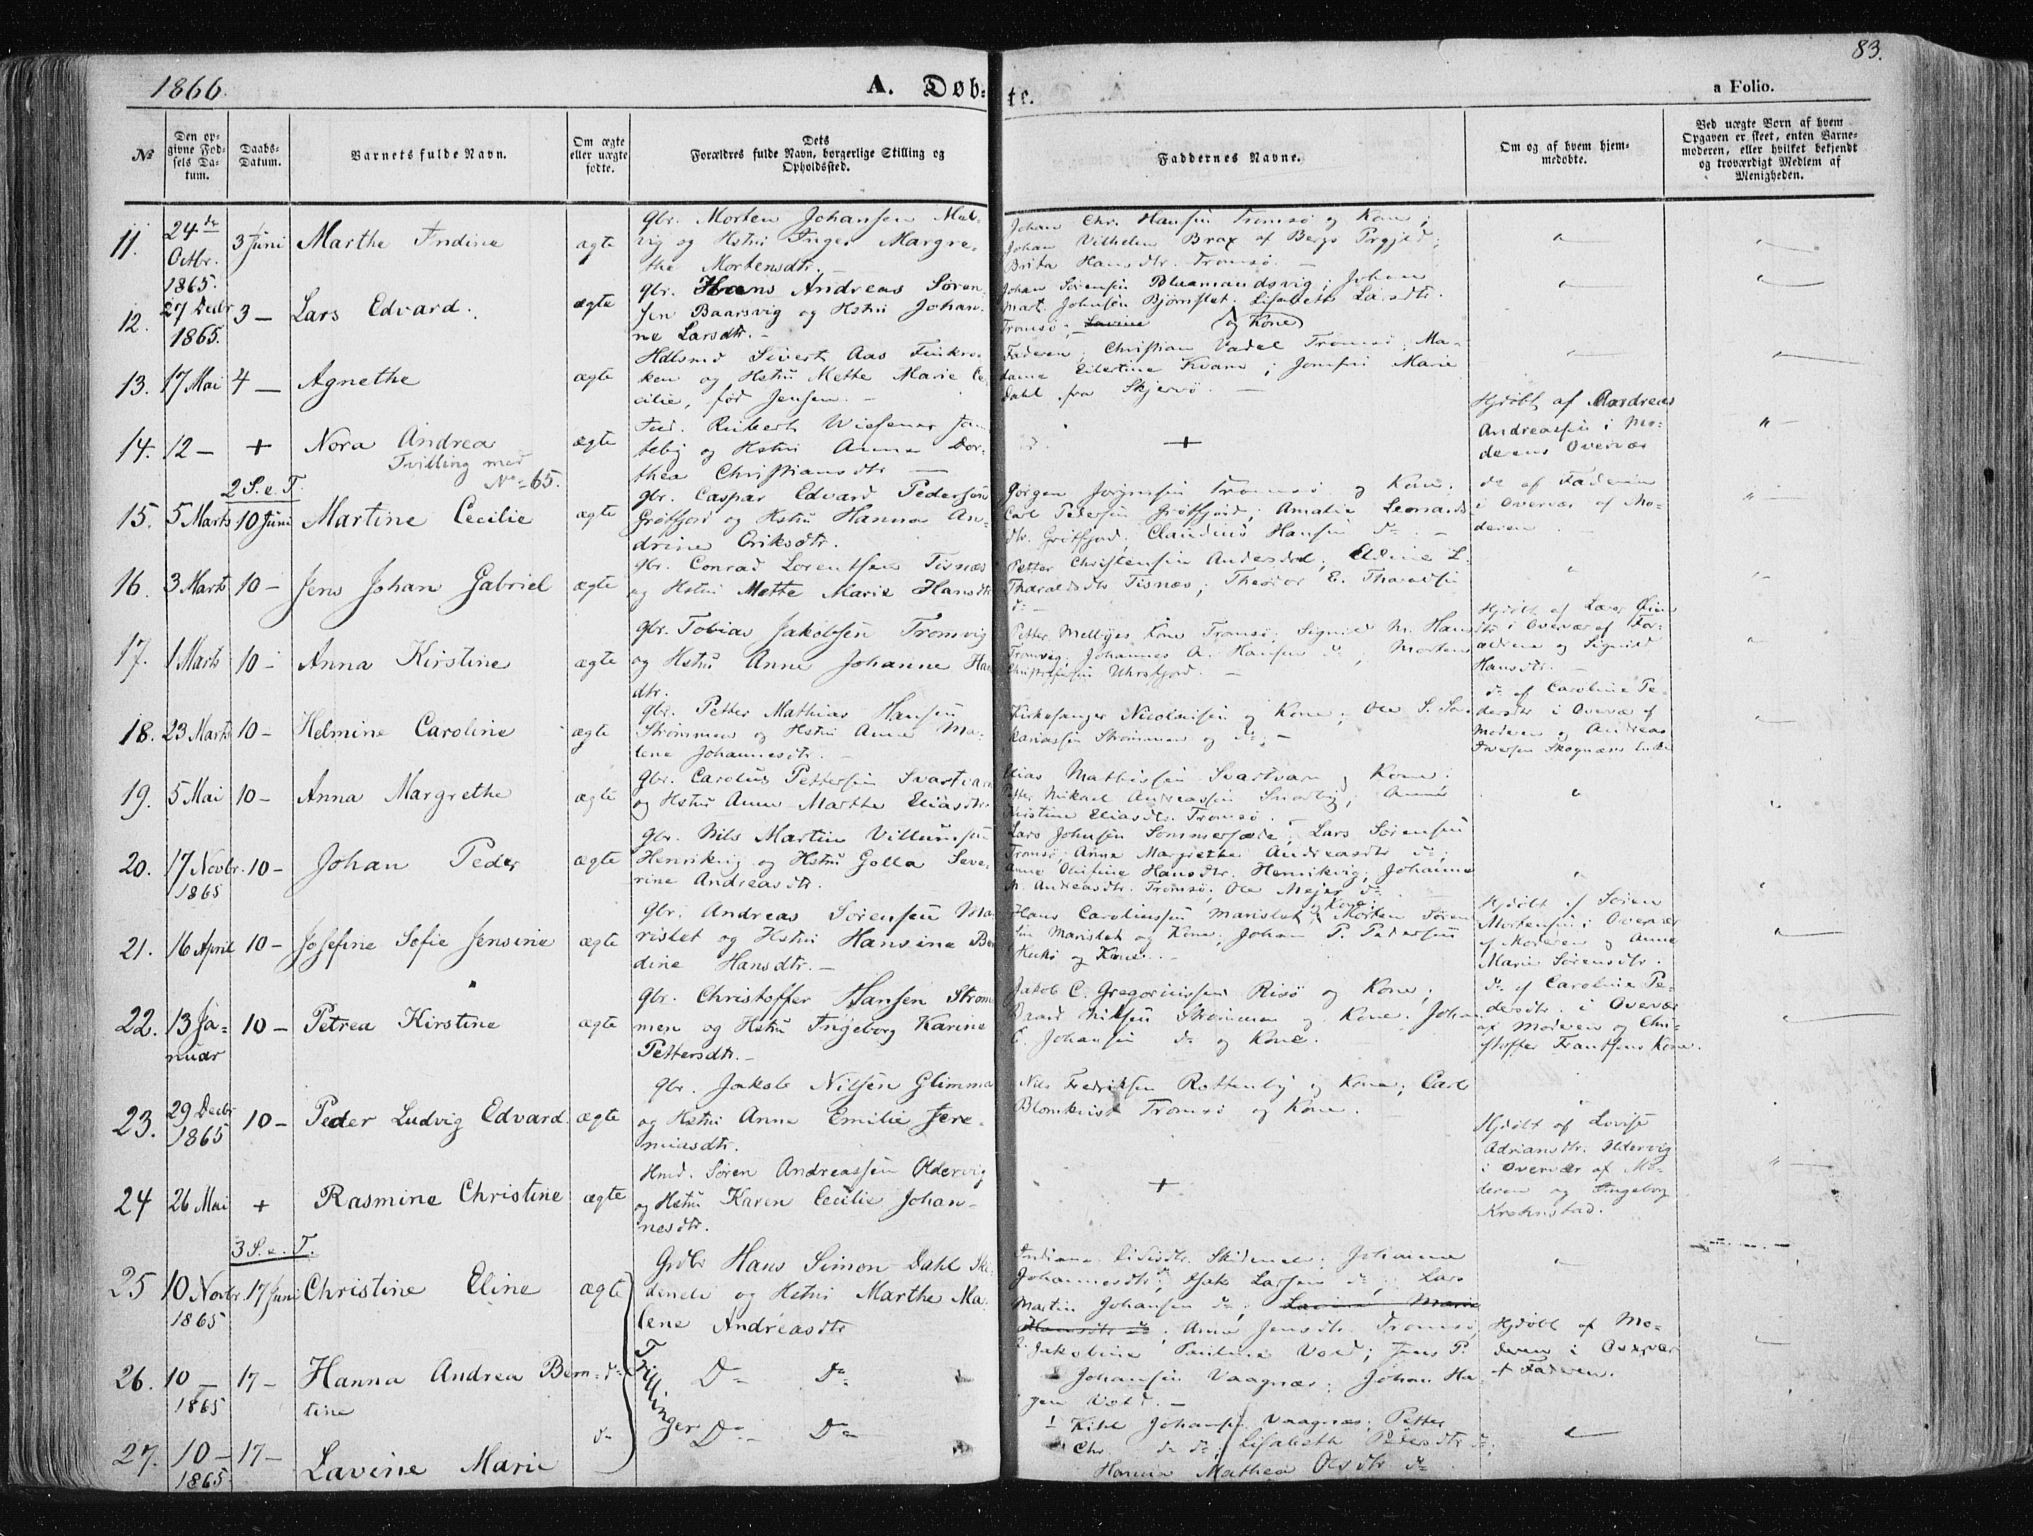 1866.
A. Døb-
te.
83.
a Folio.
No
Den op-
givne Fød-
sels Da-
tum.
Daabs-
Datum.
Barnets fulde Navn.
Om ægte
eller uægte
fødte.
Dets
Forældres fulde Navn, borgerlige Stilling og
Opholdssted.
Faddernes Navne.
Om og af hvem hjem-
medøbte.
Ved uægte Børn af hvem
Opgaven er skeet, enten Barne-
moderen, eller hvilket bekjendt
og troværdigt Medlem af
Menigheden.
11.
24de
Octbr.
1865.
3 Juni
Marthe Indine
ægte
gbr. Morten Johansen Mel-
vig og Hstru Inger Margre-
the Mortensdtr. —
Johan Chr. Hansen Tromsø og Kone;
Johan Vilhelm Brax af Bergs Prgjld;
Brita Hansdtr. Tromsø. —
12.
27 Decbr
1865.
3 —
Lars Edvard.
ægte
gbr. Hans Andreas Sören-
sen Baarsvig og Hstru Johan-
ne Larsdtr. —
Johan Sörensen Blaamandsvig; Johan
Mart. Johnsen Bjørnslet. Lisabeth Larsdtr.
Tromsø; Lavine og Kone
13.
17 Mai
4 —
Agnethe
ægte
Hdlsmd Sivert Aas Finkro-
ken og Hstru Mette Marie Ce-
cilie, fød Jensen. —
Faderen; Christian Vadel Tromsø; Ma-
dame Eilertine Kvam; Jomfru Marie
Dahl fra Skjervø. —
14.
12 —
+
Nora Andrea
Tvilling med
No 65.
ægte
Ind. Ribert Wiesener
og Hstru Anna Dor-
thea Christiansdtr —
+
Hjdøbt af
Andreassen i Mo-
derens Overvær
2 S. e. T.
15.
5 Marts
10 Juni
Martine Cecilie
ægte
gbr. Caspar Edvard Pedersen
Grötfjord og Hstru Hanna An-
drine Eriksdtr.
Jörgen Jörgensen Tromsø og Kone.
Carl Pedersen Grötfjord; Amalie Leonards-
dtr. Grötfjord; Claudius Hansen do. —
do af Faderen
i Overvær af Mo-
deren
16.
3 Marts
10 —
Jens Johan Gabriel
ægte
gbr. Conrad Lorentsen Tisnæs
og Hstru Mette Marie Hansdtr
Petter Christensen Andersdal; Eline L.
Tharaldsdtr Tisnæs; Theodor E. Tharaldsen
do —
17.
1 Marts
10 —
Anna Kirstine
ægte
gbr. Tobias Jakobsen Tromvig
og Hstru Anne Johanne Han
dtr.
Petter Mellbyes Kone Tromsø; Signild M. Hans
Tromvig; Johannes A. Hansen do; Morten
Christophersen Uhrsfjord. —
Hjdøbt af
dtr i Overvær af Fa-
deren og Signild
Hansdtr. —
18.
23 Marts
10 —
Helmine Caroline
ægte
gbr. Petter Mathias Hansen
Strømmen og Hstru Anne Ma-
lene Johannesdtr. —
Kirkesanger Nicolaisen og Kone; Ole S.
Strømmen og do; —
do af Caroline Pe-
dersdtr i Overvær af
Moderen og Andreas
Iversen Skognæs Enke
19.
5 Mai
10 —
Anna Margrethe
ægte
gbr. Carolus Pettersen Svartvan
og Hstru Anne Marthe Eliasdtr.
Elias Mathissen Svartvan og Kone;
Petter Mikael Andreassen; Anne
Kirstine Eliasdtr. Tromsø. —
20.
17 Novbr.
1865
10 —
Johan Peder
ægte
gbr. Nils Martin Villumsen
Henrikvig og Hstru Golla Seve-
rine Andreasdtr.
Lars Johnsen Sommersæde; Lars Sörensen
Tromsø; Anna Margrethe Andreasdtr do;
Anne Olufine Hansdtr. Henrikvig; Johanne
M. Andreasdtr. Tromsø; Ole Mejer do
21.
16 April
10 —
Josefine Sofie Jensine
ægte
gbr. Andreas Sörensen Ma-
rislet og Hstru Hansine Ber
dine Hansdtr. —
Hans Carolinssen Marislet og Kone; Morten Sören
sen Marislet og Kone; Johan P. Pedersen
og Kone. —
Hjdøbt af Sören
Mortensen i Overvær
af Moderen og Anne
Marie Sørensdtr.
22.
13 Ja-
nuar
10 —
Petrea Kirstine
ægte
gbr. Christoffer Hansen Strøm
men og Hstru Ingeborg Karine
Pettersdtr. —
Jakob C. Gregoriussen Risø og Kone;
Baard Nilsen Strømmen og Kone. Johan
E. Johansen do og Kone.
do af Caroline Pe-
dersdtr. i Overvær
af Moderen og Chri-
stoffer Frantsens Kone.
23.
29 Decbr
1865
10 —
Peder Ludvig Edvard.
ægte
gbr. Jakob Nilsen Glimma
og Hstru Anna Emilie Jere-
miasdtr.
Nils Fredriksen Rottenby og Kone; Carl
Blomkvist Tromsø og Kone.
24
26 Mai
+
Rasmine Christine
ægte
Hmd. Sören Andreassen Oldervig
og Hstru Karen Cecilie Johan-
nesdtr.
+
Hjdøbt af Lovise
Adriansdtr. Oldervig
i Overvær af Mo-
deren og Ingeborg
Krohnstad.
3 S. e. T.
25
10 Novbr.
1865
17 Juni
Christine Eline
ægte
Grdbr Hans Simon Dahl Ski-
dinele og Hstru Marthe Ma-
lene Andreasdtr
Indiana Skidenele; Johanna
Johannesdtr do; Isak Larsen do; Lars
Martin Johansen do; Lavine Marie
Hansdtr do; Anne Jensdtr Tromsø
26.
10 —
1865
17 —
Hanna Andrea Bern-
tine
do
Tvillinger
Do Do
Jakobine Pauline Vold; Jens P.
Johansen Vaagnæs; Johan Ha-
gen Vold. —
Hjdøbt af Mo-
deren i Overvær
af Faderen.
27.
10 —
1865
17 —
Lavine Marie
do
Do Do
Kihl Johansen Vaagnæs; Petter
Chr. do do; Lisabeth Pedersdtr do;
Hanna Mathea Olsdtr do